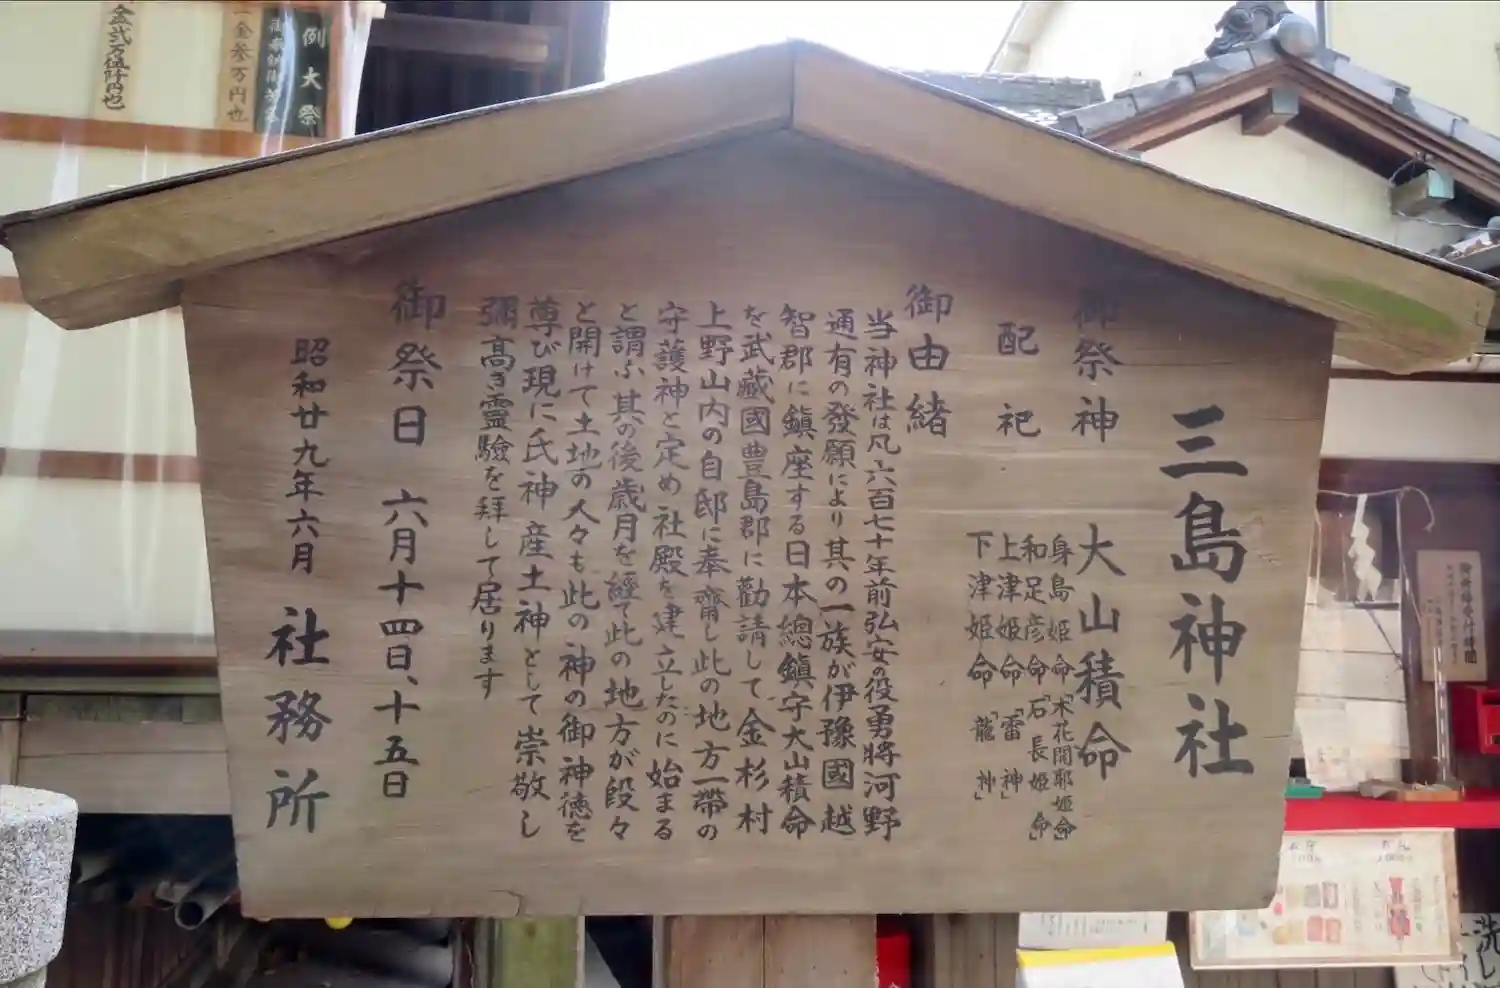 三島神社
御祭神 大山積命
配祀 身島姫命「木花開耶姫命」
和足彦命「石長姫命」
上津姫命「雷神」
下津姫命「龍神」
御由緒
当神社は凡六百七十年前弘安の役勇將河野
通有の發願により其の一族が伊豫國越
智郡に鎮座する日本總鎮守大山積命
を武藏國豊島郡に勸請して金杉村
上野山内の自邸に奉齋し此の地方一帶の
守護神と定め社殿を建立したのに始まる
と謂ふ其の後歳月を經て此の地方が段々
と開けて土地の人々も此の神の御神徳を
尊び現に氏神産土神として崇敬し
彌高き靈驗を拝して居ります
御祭日 六月十四日、十五日
昭和廿九年六月 社務所
例大祭
一金参万円也
金弐万伍阡円也